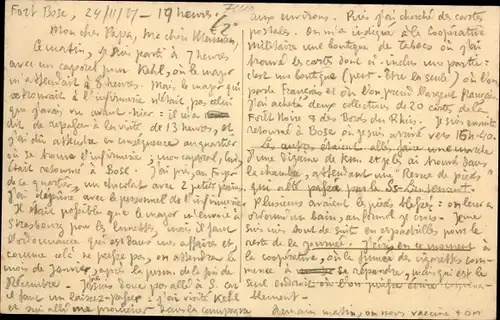 Fort Bose, 24/11/27 - 19 heures.
€ 2
Mon cher Papa, ma chère Maman,
Ce matin, je suis parti à 7 heures
avec un caporal pour Kehl, où le major
m'attendait à 8 heures. Mais, le major qui
se trouvait à l'infirmerie n'était pas celui
que j'avais vu avant-hier: il m'a
dit de repasser à la visite de 13 heures, et
j'ai dû attendre en conséquence au quartier
où se trouve l'infirmerie, mon caporal, lui,
était retourné à Bose. J'ai pris, au Foyer
de ce quartier, un chocolat avec 2 petits pains.
J'ai déjeuné avec le personnel de l'infirmerie.
Il était possible que le major m'envoie à
Strasbourg pour les lunettes, mais il faut
l'ordonnance qui est dans mes affaires et,
comme cela ne presse pas, on attendra le
mois de Janvier, après la perm. de la fin de
Décembre. Je suis donc pas allé à S. car
il faut un laissez-passer: j'ai visité Kehl
et suis allé me promener dans la campagne
aux environs. Puis j'ai cherché des cartes
postales. On m'a indiqué à la Coopérative
Militaire une boutique de tabacs où j'ai
trouvé les cartes dont ci-inclus une partie:
c'est une boutique (peut-être la seule) où l'on
parle Français et où l'on prend l'argent français.
J'ai acheté deux collections de 20 cartes de la
Forêt Noire & des Bords du Rhin. Je suis ensuite
retourné à Bose où je suis arrivé vers 16 h 40.
Les autres étaient allés faire une marche
d'une dizaine de Km. et je les ai trouvés dans
la chambre, attendant une "Revue de pieds"
qui a été passée par le Ss-Lieutenant.
Plusieurs avaient les pieds blessés: on leur a
ordonné un bain, au formol je crois. Je me
suis mis tout de suite en espadrilles pour le
reste de la journée. J'écris en ce moment à
la coopérative, où la fumée de cigarettes com-
mence à se répandre, mais qui est le
seul endroit où l'on puisse écrire convena-
blement.
Demain matin, on nous vaccine & on